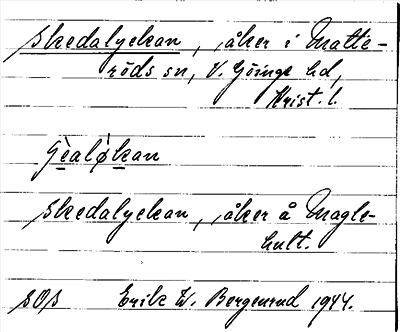 Skedalyckan, åker i Matte-
röds sn, V. Göinge hd,
Krist. l.
Skedalyckan, åker å Magle-
hult.
SOS Erik W. Bergenrud 1944.